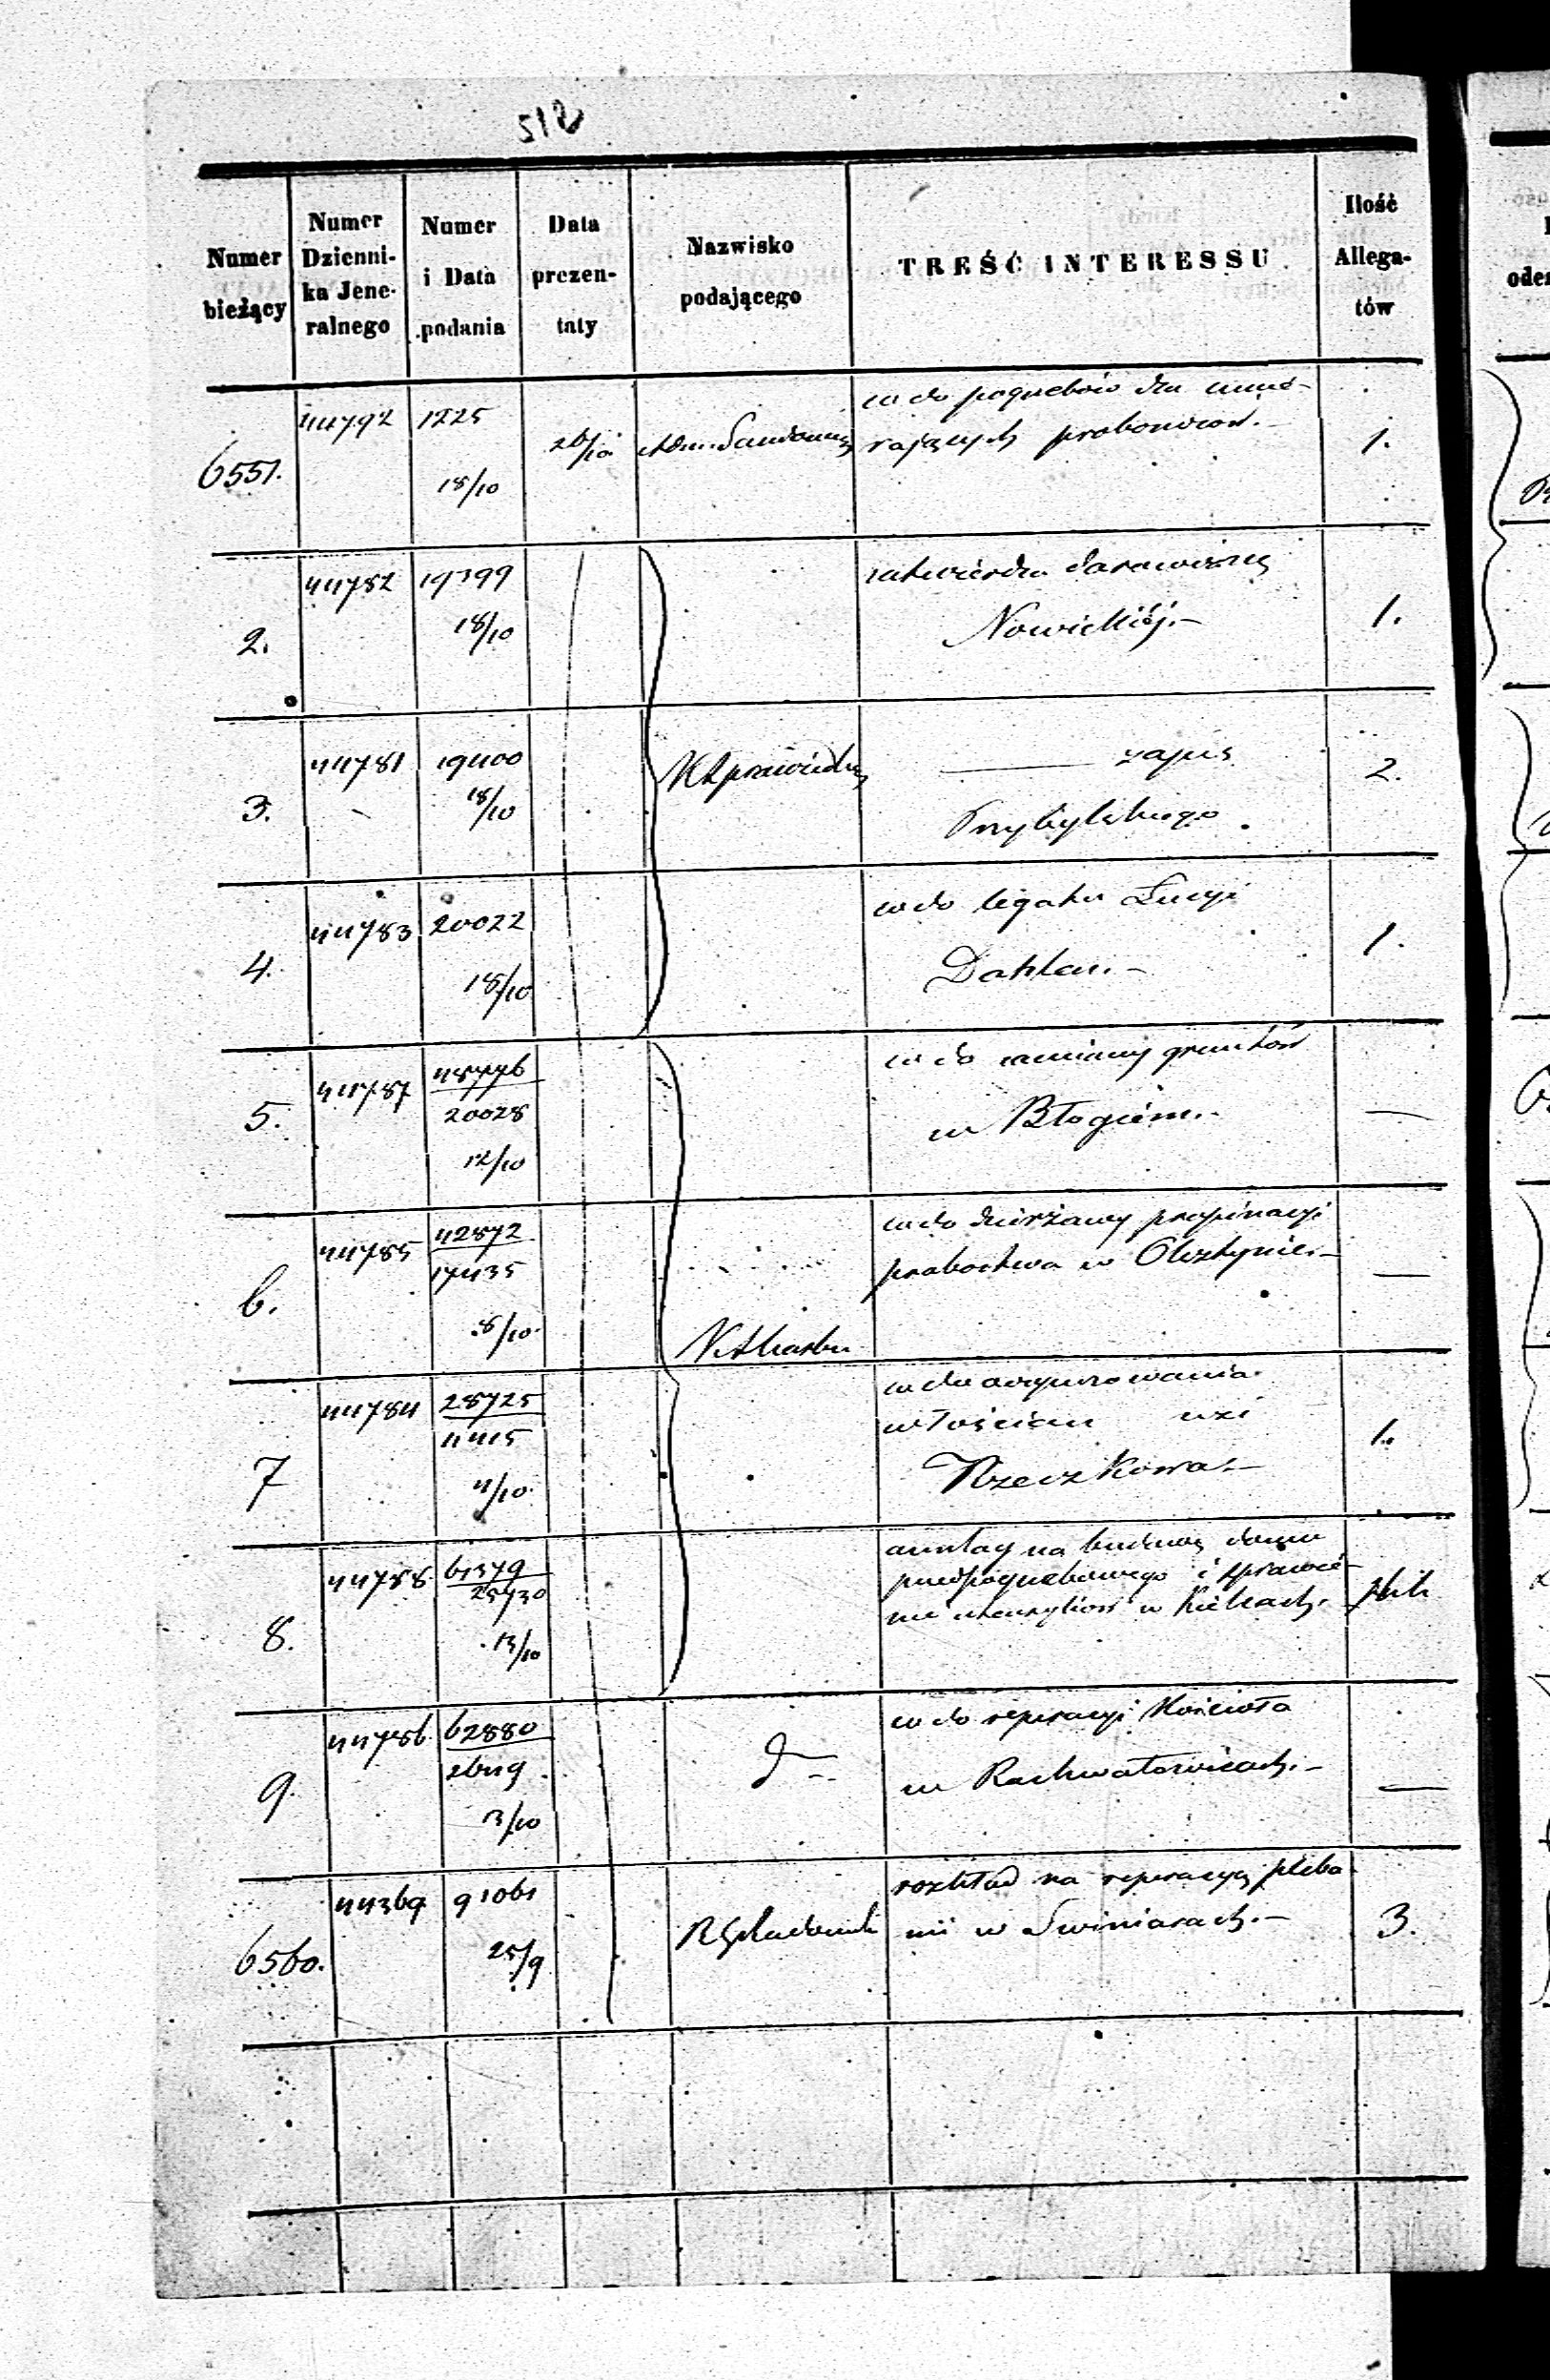 518
Numer bieżący | Numer Dziennika Jeneralnego | Numer i Data podania | Data prezentaty | Nazwisko podającego | TREŚĆ INTERESSU | Ilość Allegatów
6551. | 44792 | 1225 18/10 | 26/10 | Adm. Sandomier | co do pogrzebów dla umie-
rających proboszczów.- | 1.
2. | 44782 | 19399 18/10 | zatwierdza darowiznę
Nowickiéj.- | 1.
3. | 44781 | 19400 18/10 | K Sprawiedliw | —— zapis
Przybylskiego. | 2.
4. | 44783 | 20022 18/10 | co do legatu Łucyi
Dahlen.- | 1.
5. | 44787 | 48776 20028 12/10 | co do zamiany gruntów
w Błogiém.- | —
6. | 44785 | 42872 17435 8/10 | K Skarbu | co do dzierżawy propinacyi
probostwa w Olsztynie.- | —
7 | 44784 | 28725 11415 4/10 | co do oczynszowania
włościan wsi
Rzeczkowa.- | 1.
8. | 44788 | 61379 25730 13/10 | anszlag na budowę domu
przedpogrzebowego i sprawie-
nie utensyliów w Kielcach. | plik
9. | 44786 | 62880 26419 13/10 | d° | co do reperacyi Kościoła
w Rachwałowicach.- | —
6560. | 44369 | 91061 25/9 | R G Radomski | rozkład na reperacyę pleba-
nii w Swiniarach.- | 3.